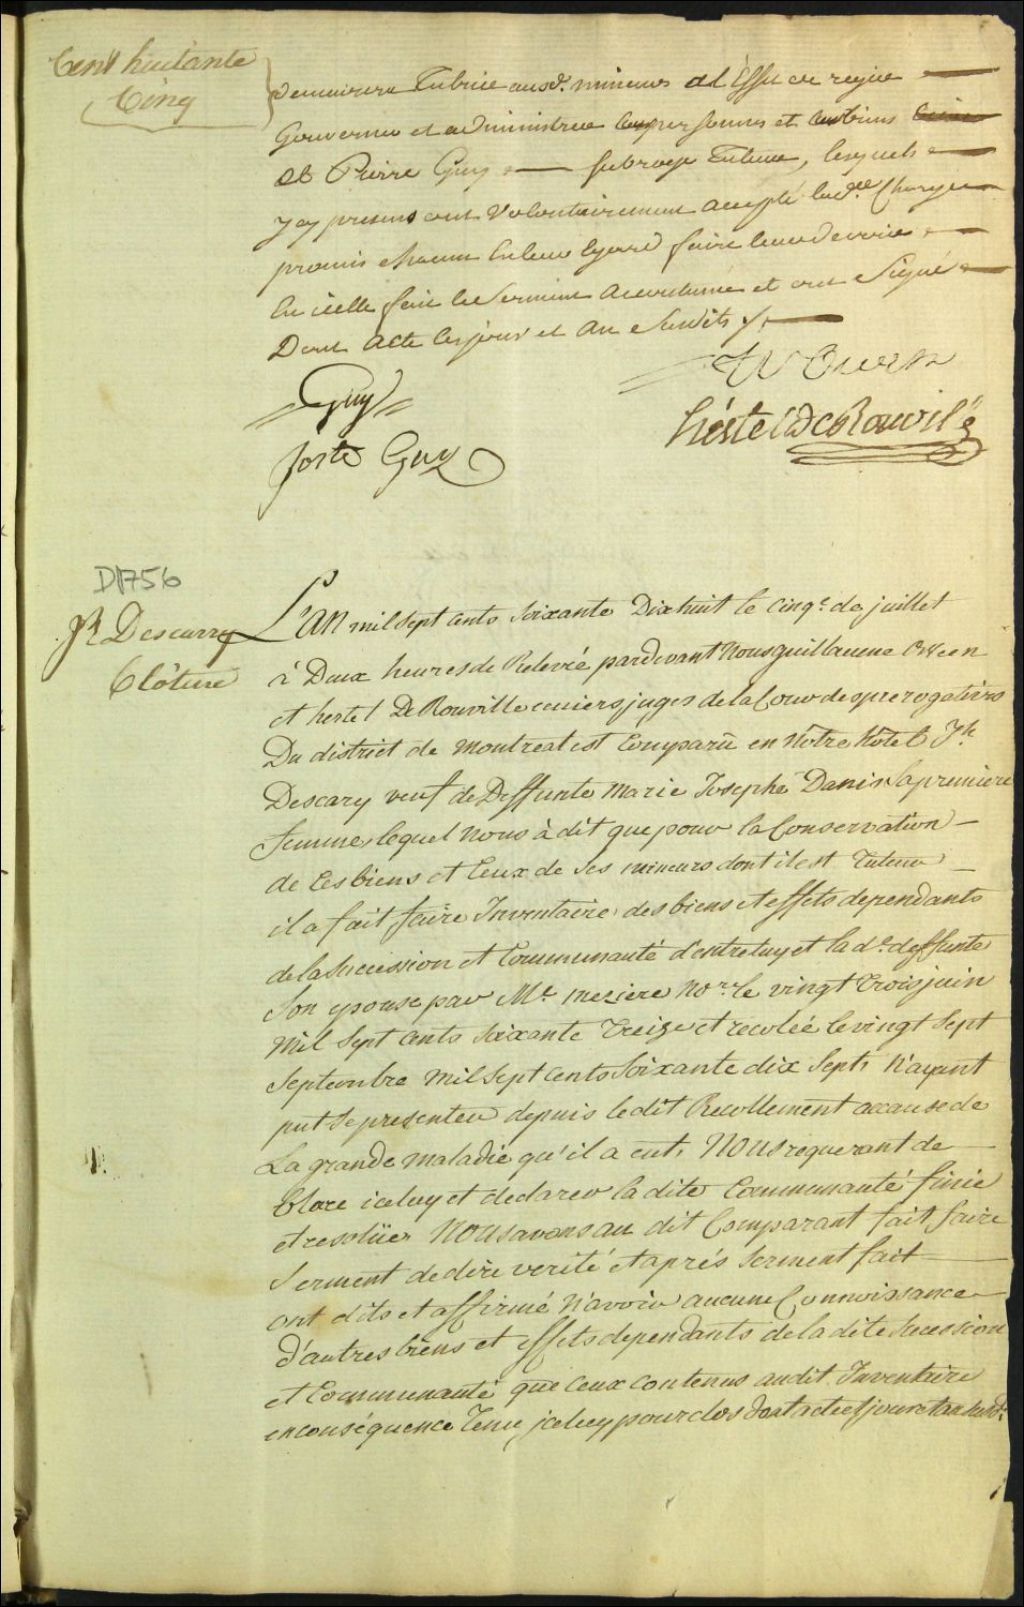 Cent huitante
Cinq
demeurera Tutrice ausd. mineurs a l'Effet de regire
Gouverner et administrer leurs personnes et leurs biens
et Pierre Guy subrogé Tuteur, lesquels
y cy presens ont Volontairement accepté lad.ce Charge
promis chacun En leur Egard faire leur devoir
En icelle fait le Serment accoutumé et ont Signé
Dont acte les jour et an Susdits
W Owen
Guy
hertel De Rouville
Guy
D1756
Jh Descarry
Clôture
L'an mil sept cents Soixante Dix huit le cinq.e de juillet
à Deux heures de Relevée pardevant Nous guillaume Owen
et hertel De Rouville ecuiers juges de la Cour des prerogatives
Du district de Montreal est Comparû en Notre hôtel Jh.
Descary veuf de Deffunte Marie Josephe Danis Sa premiere
femme, lequel Nous à dit que pour la Conservation
de Ces biens et Ceux de Ses mineurs dont il est Tuteur
il a fait faire Inventaire des biens et effets dependants
de la Succession et Communauté d'entre luy et la d.e deffunte
Son epouse par M.e meziere No.re le vingt trois juin
Mil Sept Cents Soixante Treize et recolée le vingt Sept
Septembre Mil Sept Cents Soixante dix Sept, N'ayant
put Se presenter depuis le dit Recollement accause de
La grande maladie qu'il a eut, Nous requerant de
Clore iceluy et declarer la dite Communauté finie
et resolüe, Nous avons au dit Comparant fait faire
Serment de dire verité et aprés Serment fait
ont dits et affirmé N'avoir aucune Connoissance
d'autres biens et effets dependants de la dite Sucession
et Communauté que Ceux contenus audit Inventaire
en conséquence Tenu iceluy pour clos dont acte et jour et an susd.